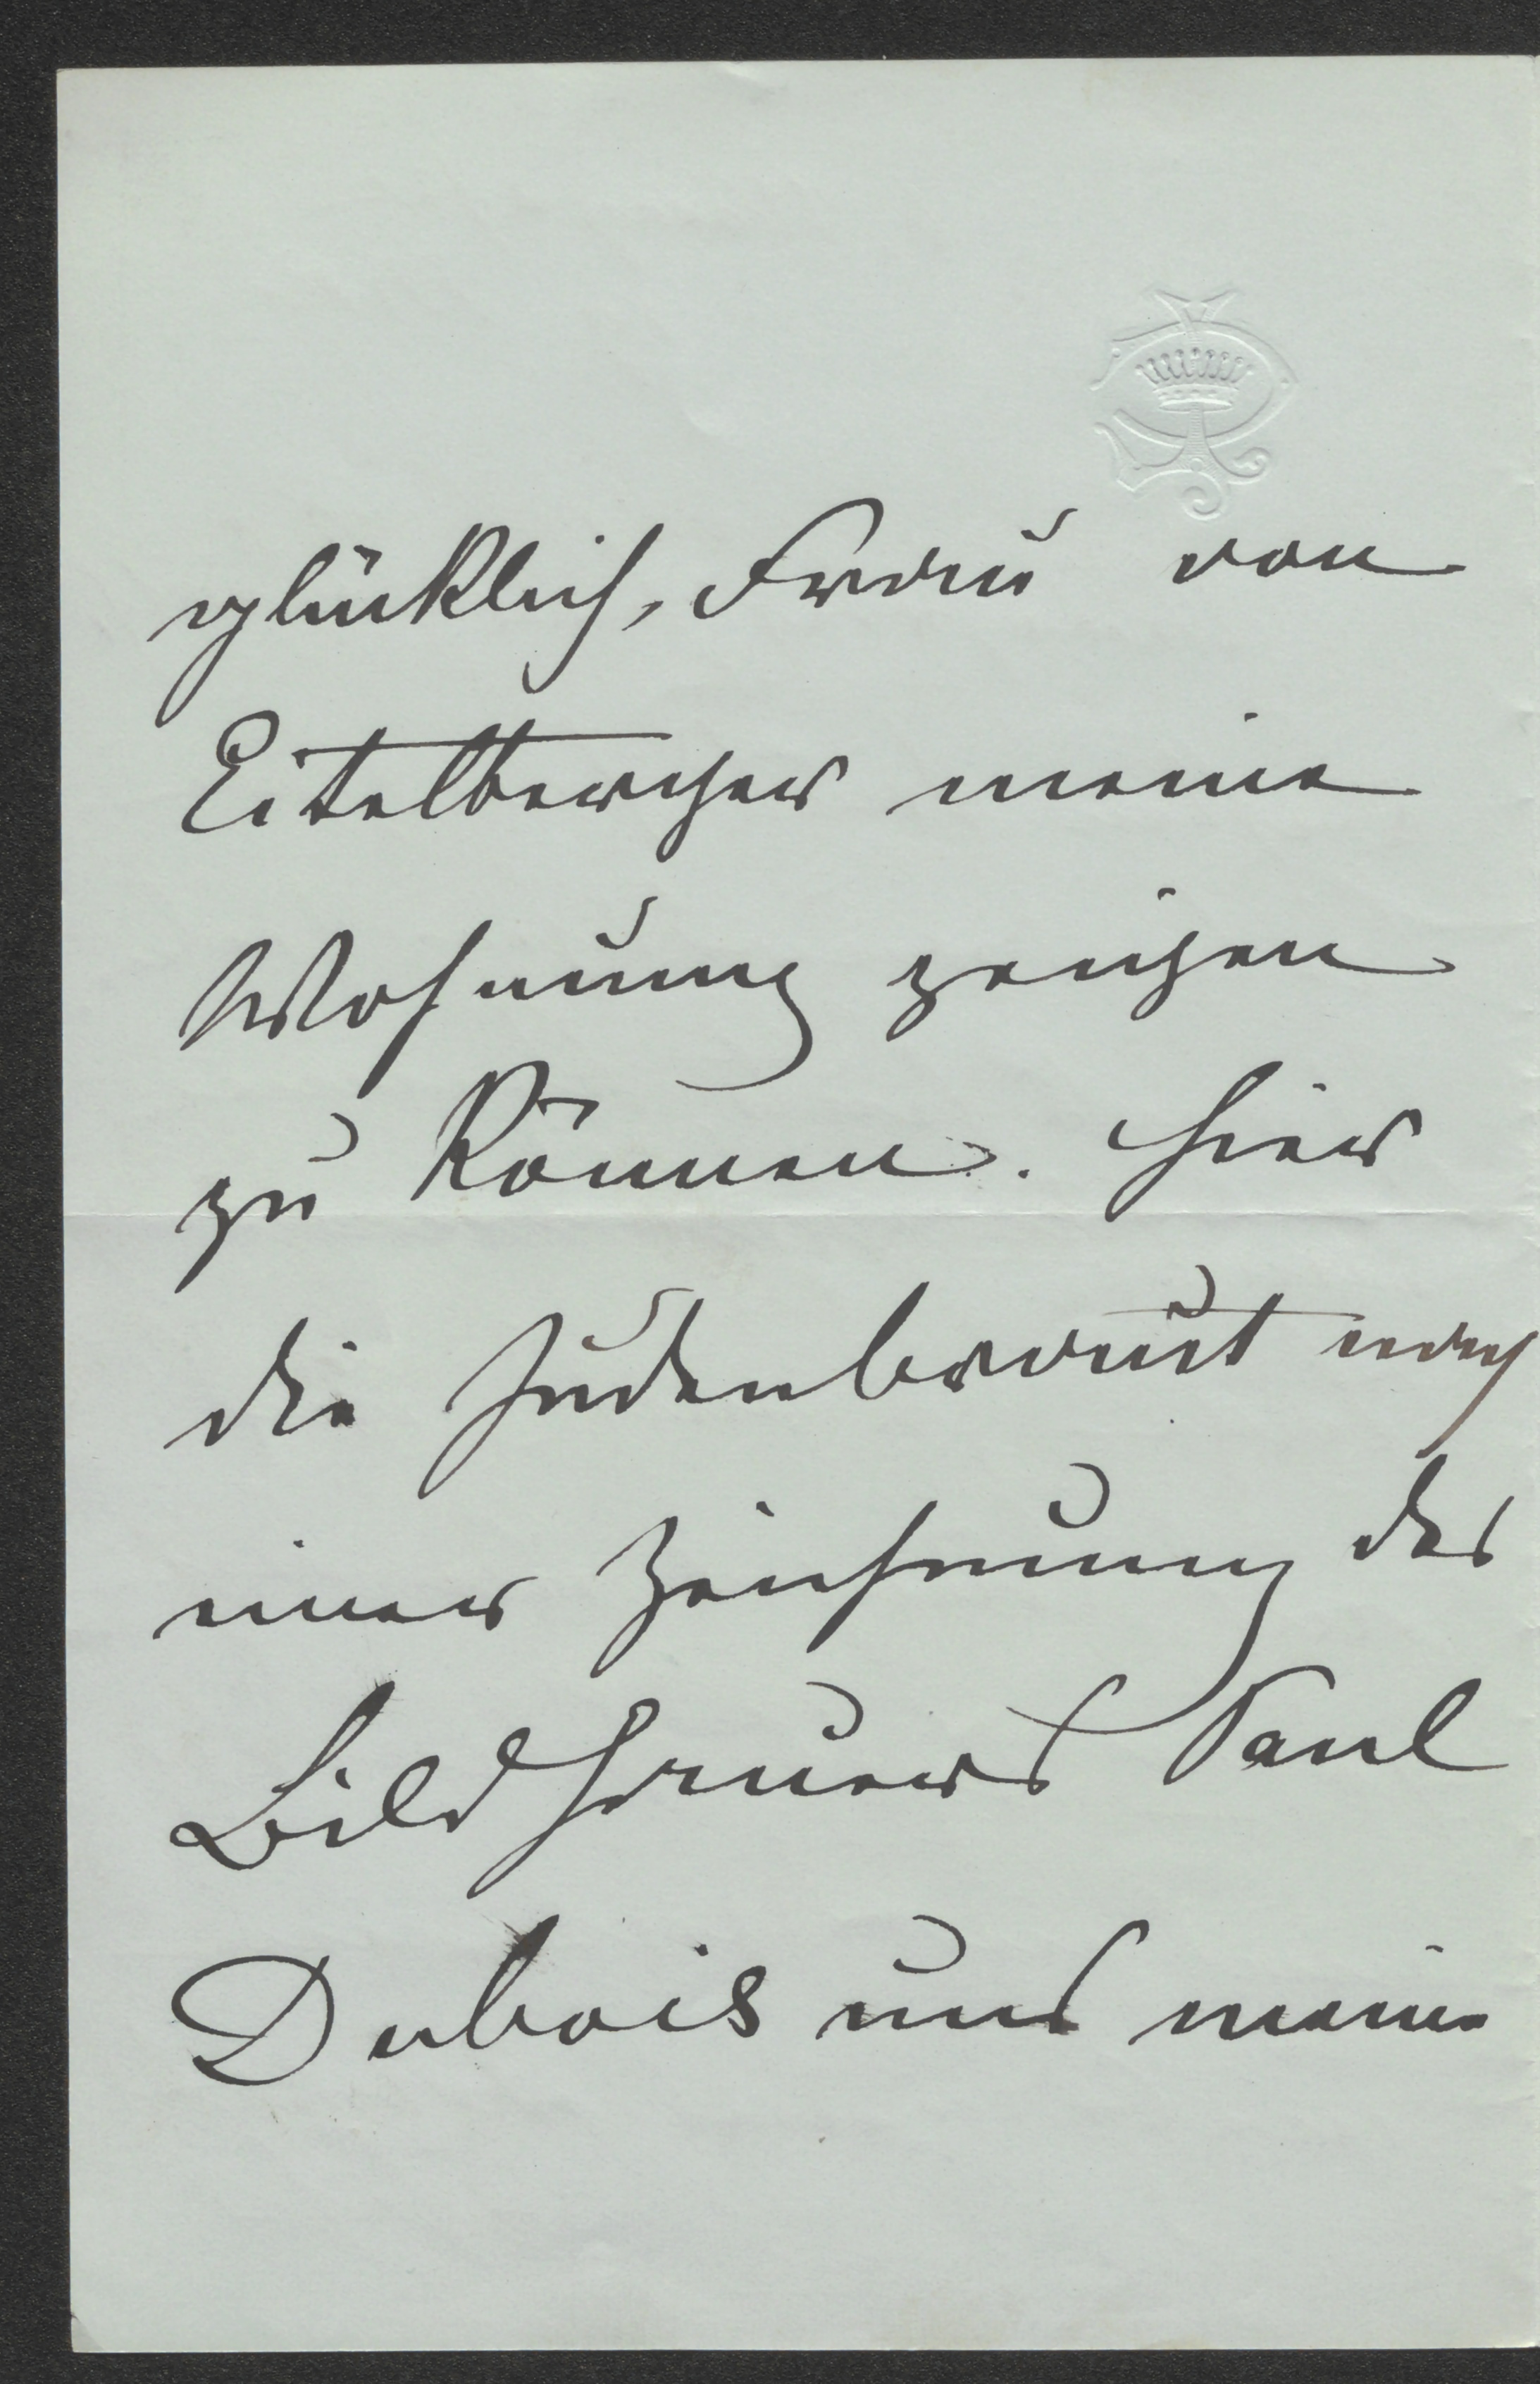 glücklich, Frau von
Eitelberger meine
Wohnung zeigen
zu können. Hier
die Judenbraut nach
einer Zeichnung des
Bildhauers Paul
Dubois und meine